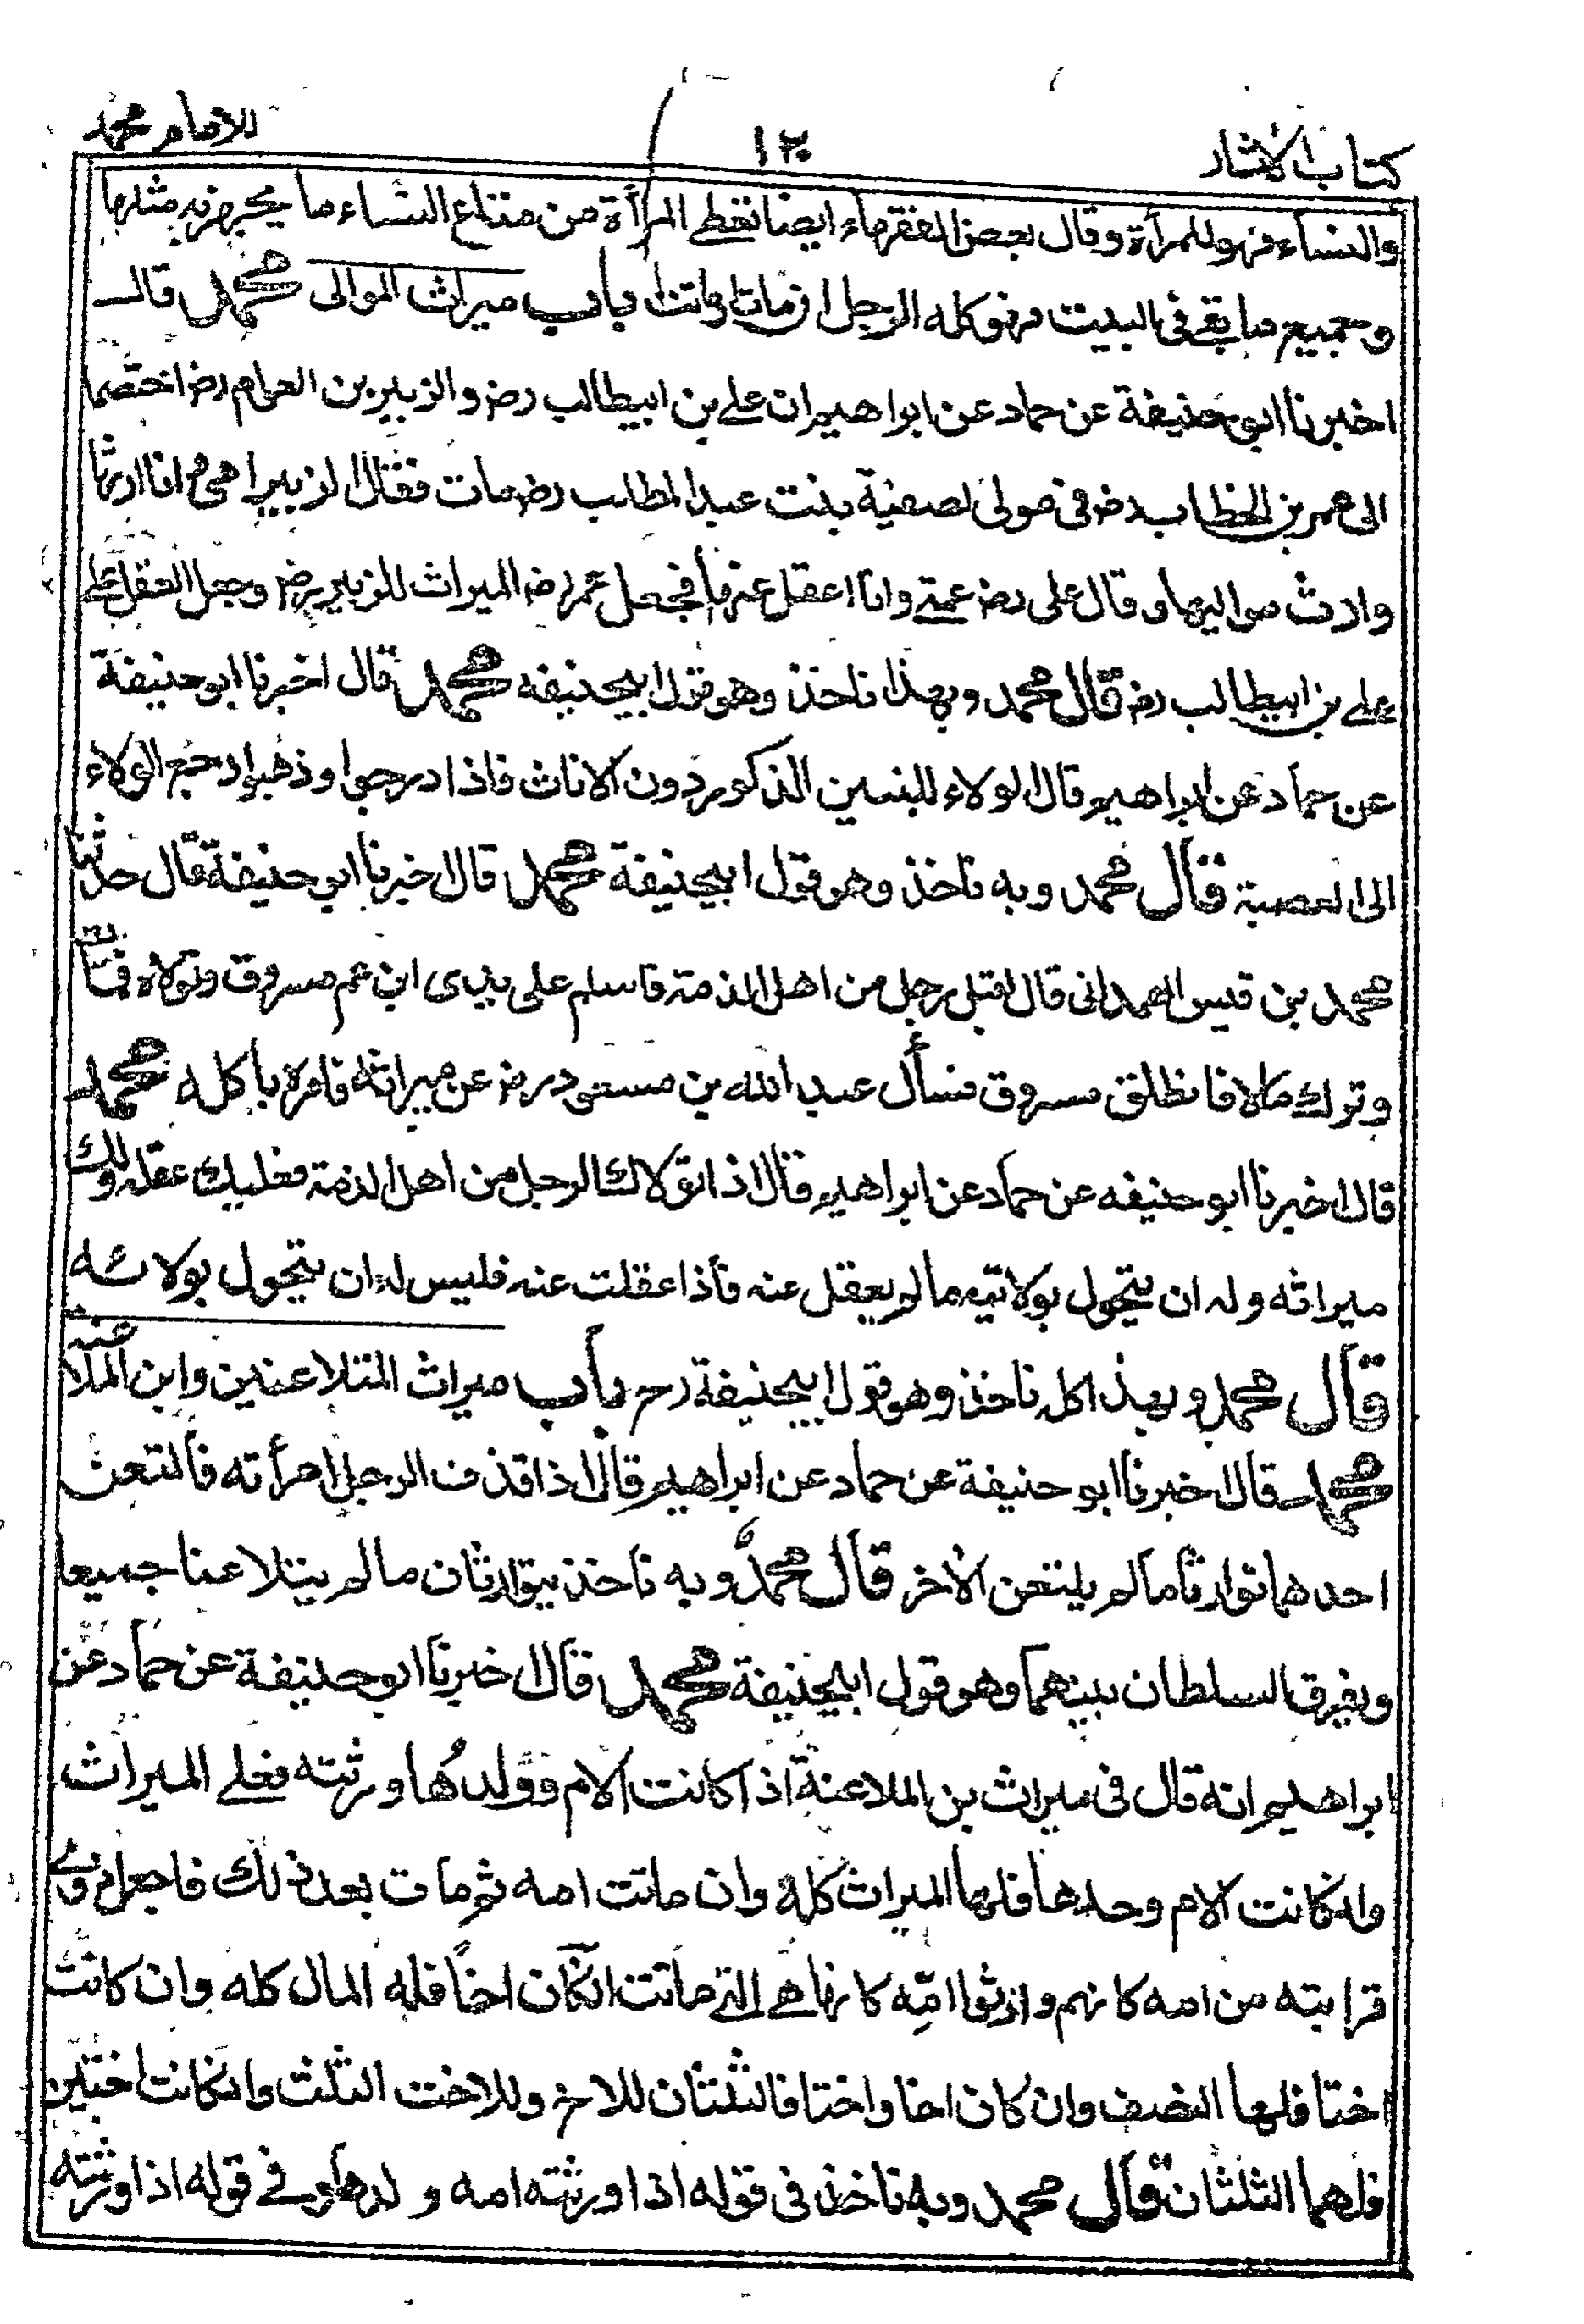 كتاب الاثار ١٢٠ للامام محمد
والنساء فهو للمرأة وقال بعض الفقهاء ايضا تعطى المرأة من متاع النساء ما يجهز به مثلها
وجميع ما بقي في البيت فهو كله الرجل ان مات او ماتت باب ميراث الموالى محمد قال
اخبرنا ابو حنيفة عن حماد عن ابراهيم ان علي بن ابيطالب رض والزبير بن العوام رض اختصما
الى عمر بن الخطاب رض في مولى لصفية بنت عبد المطلب رض مات فقال الزبير امي وانا ارثها
وارث مواليها وقال على رض عمتي وانا اعقل عنها فجعل عمر رض الميراث للزبير رض وجعل العقل على
علي بن ابيطالب رض قال محمد وبهذا ناخذ وهو قول ابيحنيفه محمد قال اخبرنا ابو حنيفة
عن حماد عن ابراهيم قال الولاء للبنين الذكور دون الاناث فاذا درجوا وذهبوا رجع الولاء
الى العصبة قال محمد وبه ناخذ وهو قول ابيحنيفة محمد قال اخبرنا ابو حنيفة قال حدثنا
محمد بن قيس الهمدانى قال اقبل رجل من اهل الذمة فاسلم على يدى ابن عم مسروق وتولاه فمات
وترك مالا فانطلق مسروق فسأل عبد الله بن مسعود رض عن ميراثه فامره باكله محمد
قال اخبرنا ابو حنيفه عن حماد عن ابراهيم قال اذا تولاك الرجل من اهل الذمة فعليك عقله ولك
ميراثه وله ان يتحول بولائه ما لم يعقل عنه فاذا عقلت عنه فليس له ان يتحول بولائه
قال محمد وبهذا كله ناخذ وهو قول ابيحنيفة رح باب ميراث المتلاعنين وابن الملاعنه
محمد قال اخبرنا ابو حنيفة عن حماد عن ابراهيم قال اذا قذف الرجل امرأته فالتعن
احدهما توارثا ما لم يلتعن الاخر قال محمد وبه ناخذ يتوارثان ما لم يتلاعنا جميعا
ويفرق السلطان بينهما وهو قول ابيحنيفة محمد قال اخبرنا ابو حنيفة عن حماد عن
ابراهيم انه قال في ميراث بن الملاعنة اذا كانت الام وولدها ورثته فعلى الميراث
وان كانت الام وحدها فلها الميراث كله وان ماتت امه ثم مات بعد ذلك فاجعل ذوي
قرابته من امه كانهم وارثوا امّه كانها هي التي ماتت ان كان اخا فله المال كله وان كانت
اختا فلها النصف وان كان اخا واختا فالثلثان للاخ وللاخت الثلث وان كانت اختين
فلهما الثلثان قال محمد وبه ناخذ في قوله اذا ورثته امه و لدها وفي قوله اذا ورثته